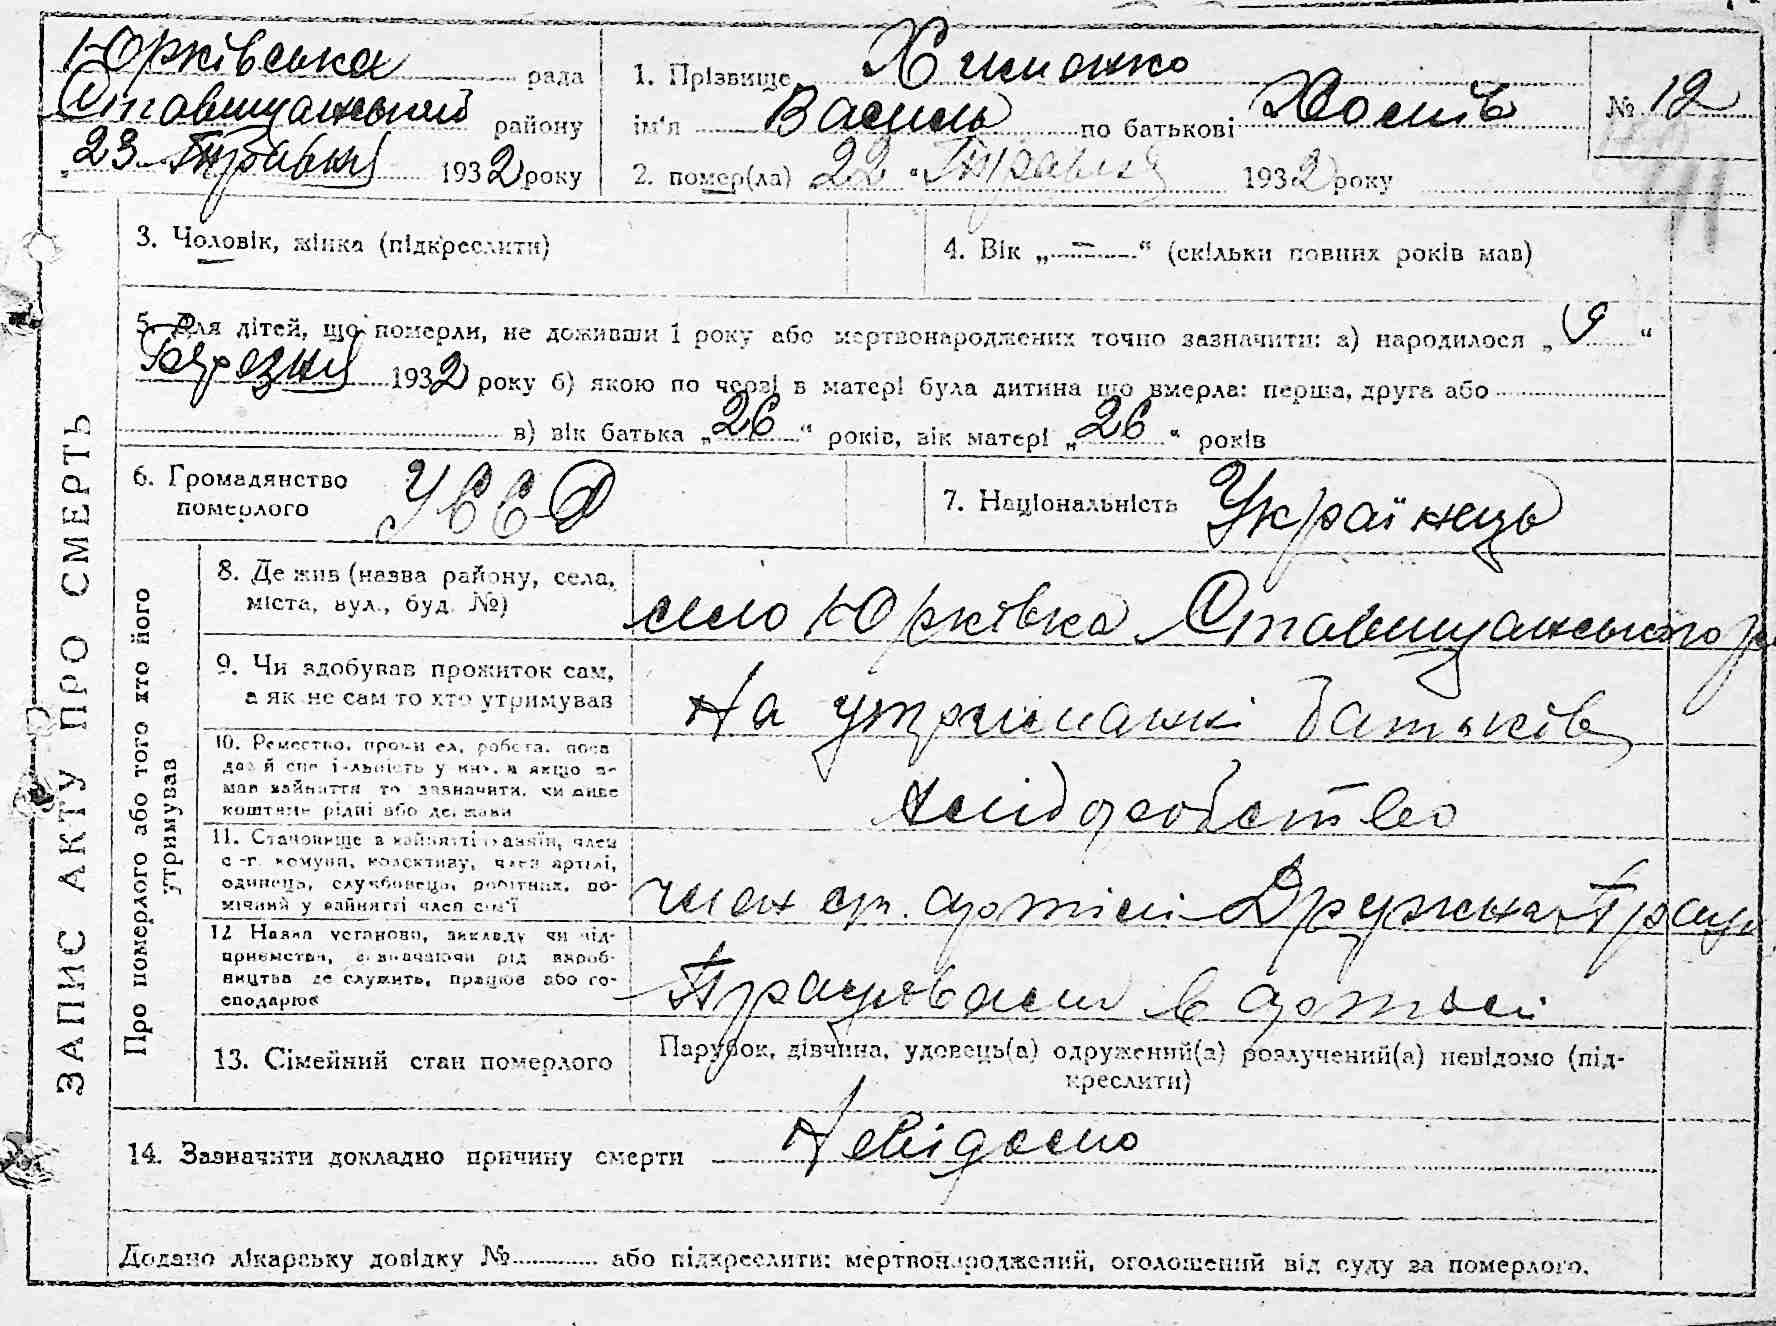 Юрківська рада
Ставищанський району
„23 Травня 1932 року
1. Прізвище Химонко
ім'я Василь по батькові Хомів
2. помер(ла) 22 “ Травня 1932 року
№ 12
3. Чоловік, жінка (підкреслити)
4. Вік „ – “ (скільки повних років мав)
5. Для дітей, що померли, не доживши 1 року або мертвонароджених точно зазначити: а) народилося „ 9 “
Березня 1932 року б) якою по черзі в матері була дитина що вмерла: перша, друга або
в) вік батька „ 26 “ років, вік матері „ 26 “ років
6. Громадянство
померлого УССР
7. Національність Українець
ЗАПИС АКТУ ПРО СМЕРТЬ
Про померлого або того хто його
утримував
8. Де жив (назва району, села,
міста, вул., буд. №)
село Юрківка Ставищанського р
9. Чи здобував прожиток сам,
а як не сам то хто утримував
На утриманні батьків
10. Ремество, промисел, робота, поса
да й спеціяльність у них, а якщо не
мав зайняття то зазначити, чи живе
коштами рідні або держави
Хліборобство
11. Становище в зайнятті: хазяїн, член
с.-г. комуни, колективу, член артілі,
одинець, службовець, робітник, по-
мічний у зайнятті член сім'ї
член сг. артілі Дружна Праця
12 Назва установи, закладу чи під-
приємства, зазначаючи рід вироб-
ництва де служить, працює або го-
сподарює
Працювали в артілі
13. Сімейний стан померлого
Парубок, дівчина, удовець(а) одружений(а) розлучений(а) невідомо (під-
креслити)
14. Зазначити докладно причину смерти Невідомо
Додано лікарську довідку № або підкреслити: мертвонароджений, оголошений від суду за померлого.